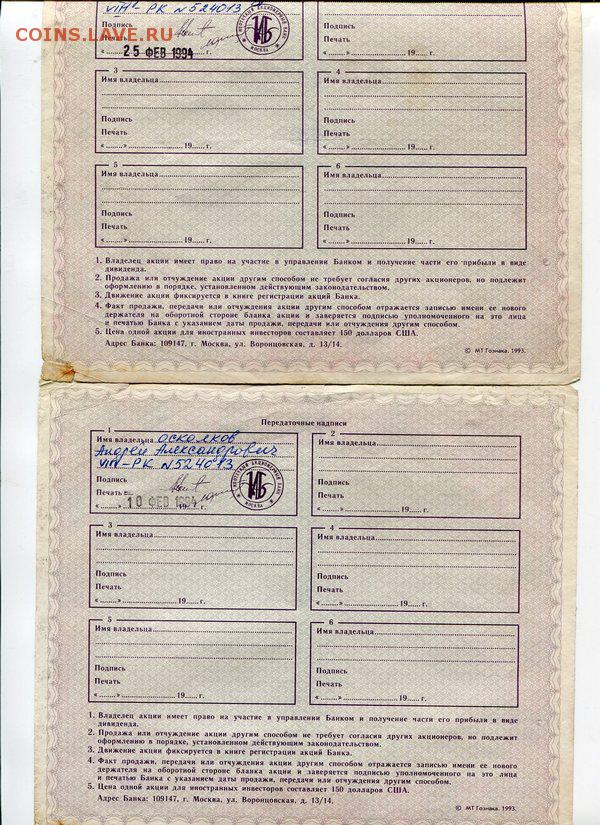 COINS.LAVE.RU
VIII - РК N 524013
Подпись
Печать
« 25 ФЕВ 1994
МОСКВА
Подпись
Печать
« ........» ........................ 19...... г.
3
Имя владельца
Подпись
Печать
« ........» ........................ 19...... г.
4
Имя владельца
Подпись
Печать
« ........» ........................ 19...... г.
5
Имя владельца
Подпись
Печать
« ........» ........................ 19...... г.
6
Имя владельца
Подпись
Печать
« ........» ........................ 19...... г.
1. Владелец акции имеет право на участие в управлении Банком и получение части его прибыли в виде
дивиденда.
2. Продажа или отчуждение акции другим способом не требует согласия других акционеров, но подлежит
оформлению в порядке, установленном действующим законодательством.
3. Движение акции фиксируется в книге регистрации акций Банка.
4. Факт продажи, передачи или отчуждения акции другим способом отражается записью имени ее нового
держателя на оборотной стороне бланка акции и заверяется подписью уполномоченного на это лица
и печатью Банка с указанием даты продажи, передачи или отчуждения другим способом.
5. Цена одной акции для иностранных инвесторов составляет 150 долларов США.
Адрес Банка: 109147, г. Москва, ул. Воронцовская, д. 13/14.
© МТ Гознака. 1993.
Передаточные надписи
1
Имя владельца Осколков
Андрей Александрович
VIII - РК N 524013
Подпись
Печать
« 10 ФЕВ 1994 19 г.
АКЦИОНЕРНЫЙ БАНК
МОСКВА
2
Имя владельца
Подпись
Печать
« ........» ........................ 19...... г.
3
Имя владельца
Подпись
Печать
« ........» ........................ 19...... г.
4
Имя владельца
Подпись
Печать
« ........» ........................ 19...... г.
5
Имя владельца
Подпись
Печать
« ........» ........................ 19...... г.
6
Имя владельца
Подпись
Печать
« ........» ........................ 19...... г.
1. Владелец акции имеет право на участие в управлении Банком и получение части его прибыли в виде
дивиденда.
2. Продажа или отчуждение акции другим способом не требует согласия других акционеров, но подлежит
оформлению в порядке, установленном действующим законодательством.
3. Движение акции фиксируется в книге регистрации акций Банка.
4. Факт продажи, передачи или отчуждения акции другим способом отражается записью имени ее нового
держателя на оборотной стороне бланка акции и заверяется подписью уполномоченного на это лица
и печатью Банка с указанием даты продажи, передачи или отчуждения другим способом.
5. Цена одной акции для иностранных инвесторов составляет 150 долларов США.
Адрес Банка: 109147, г. Москва, ул. Воронцовская, д. 13/14.
© МТ Гознака. 1993.